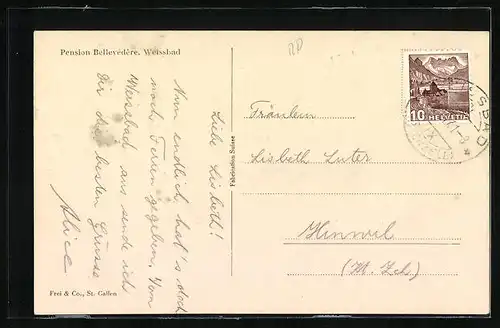 Pension Bellevédère, Weissbad
Liebe Lisbeth!
Nun endlich, hat's doch
noch Ferien gegeben. Vom
Weissbad aus sende ich
Dir die besten Grüsse
Alice
Frei & Co., St. Gallen
Fabrication Suisse
10 HELVETIA
SBAD
Fräulein
Lisbeth Suter
Hinwil
(Kt. Zch)